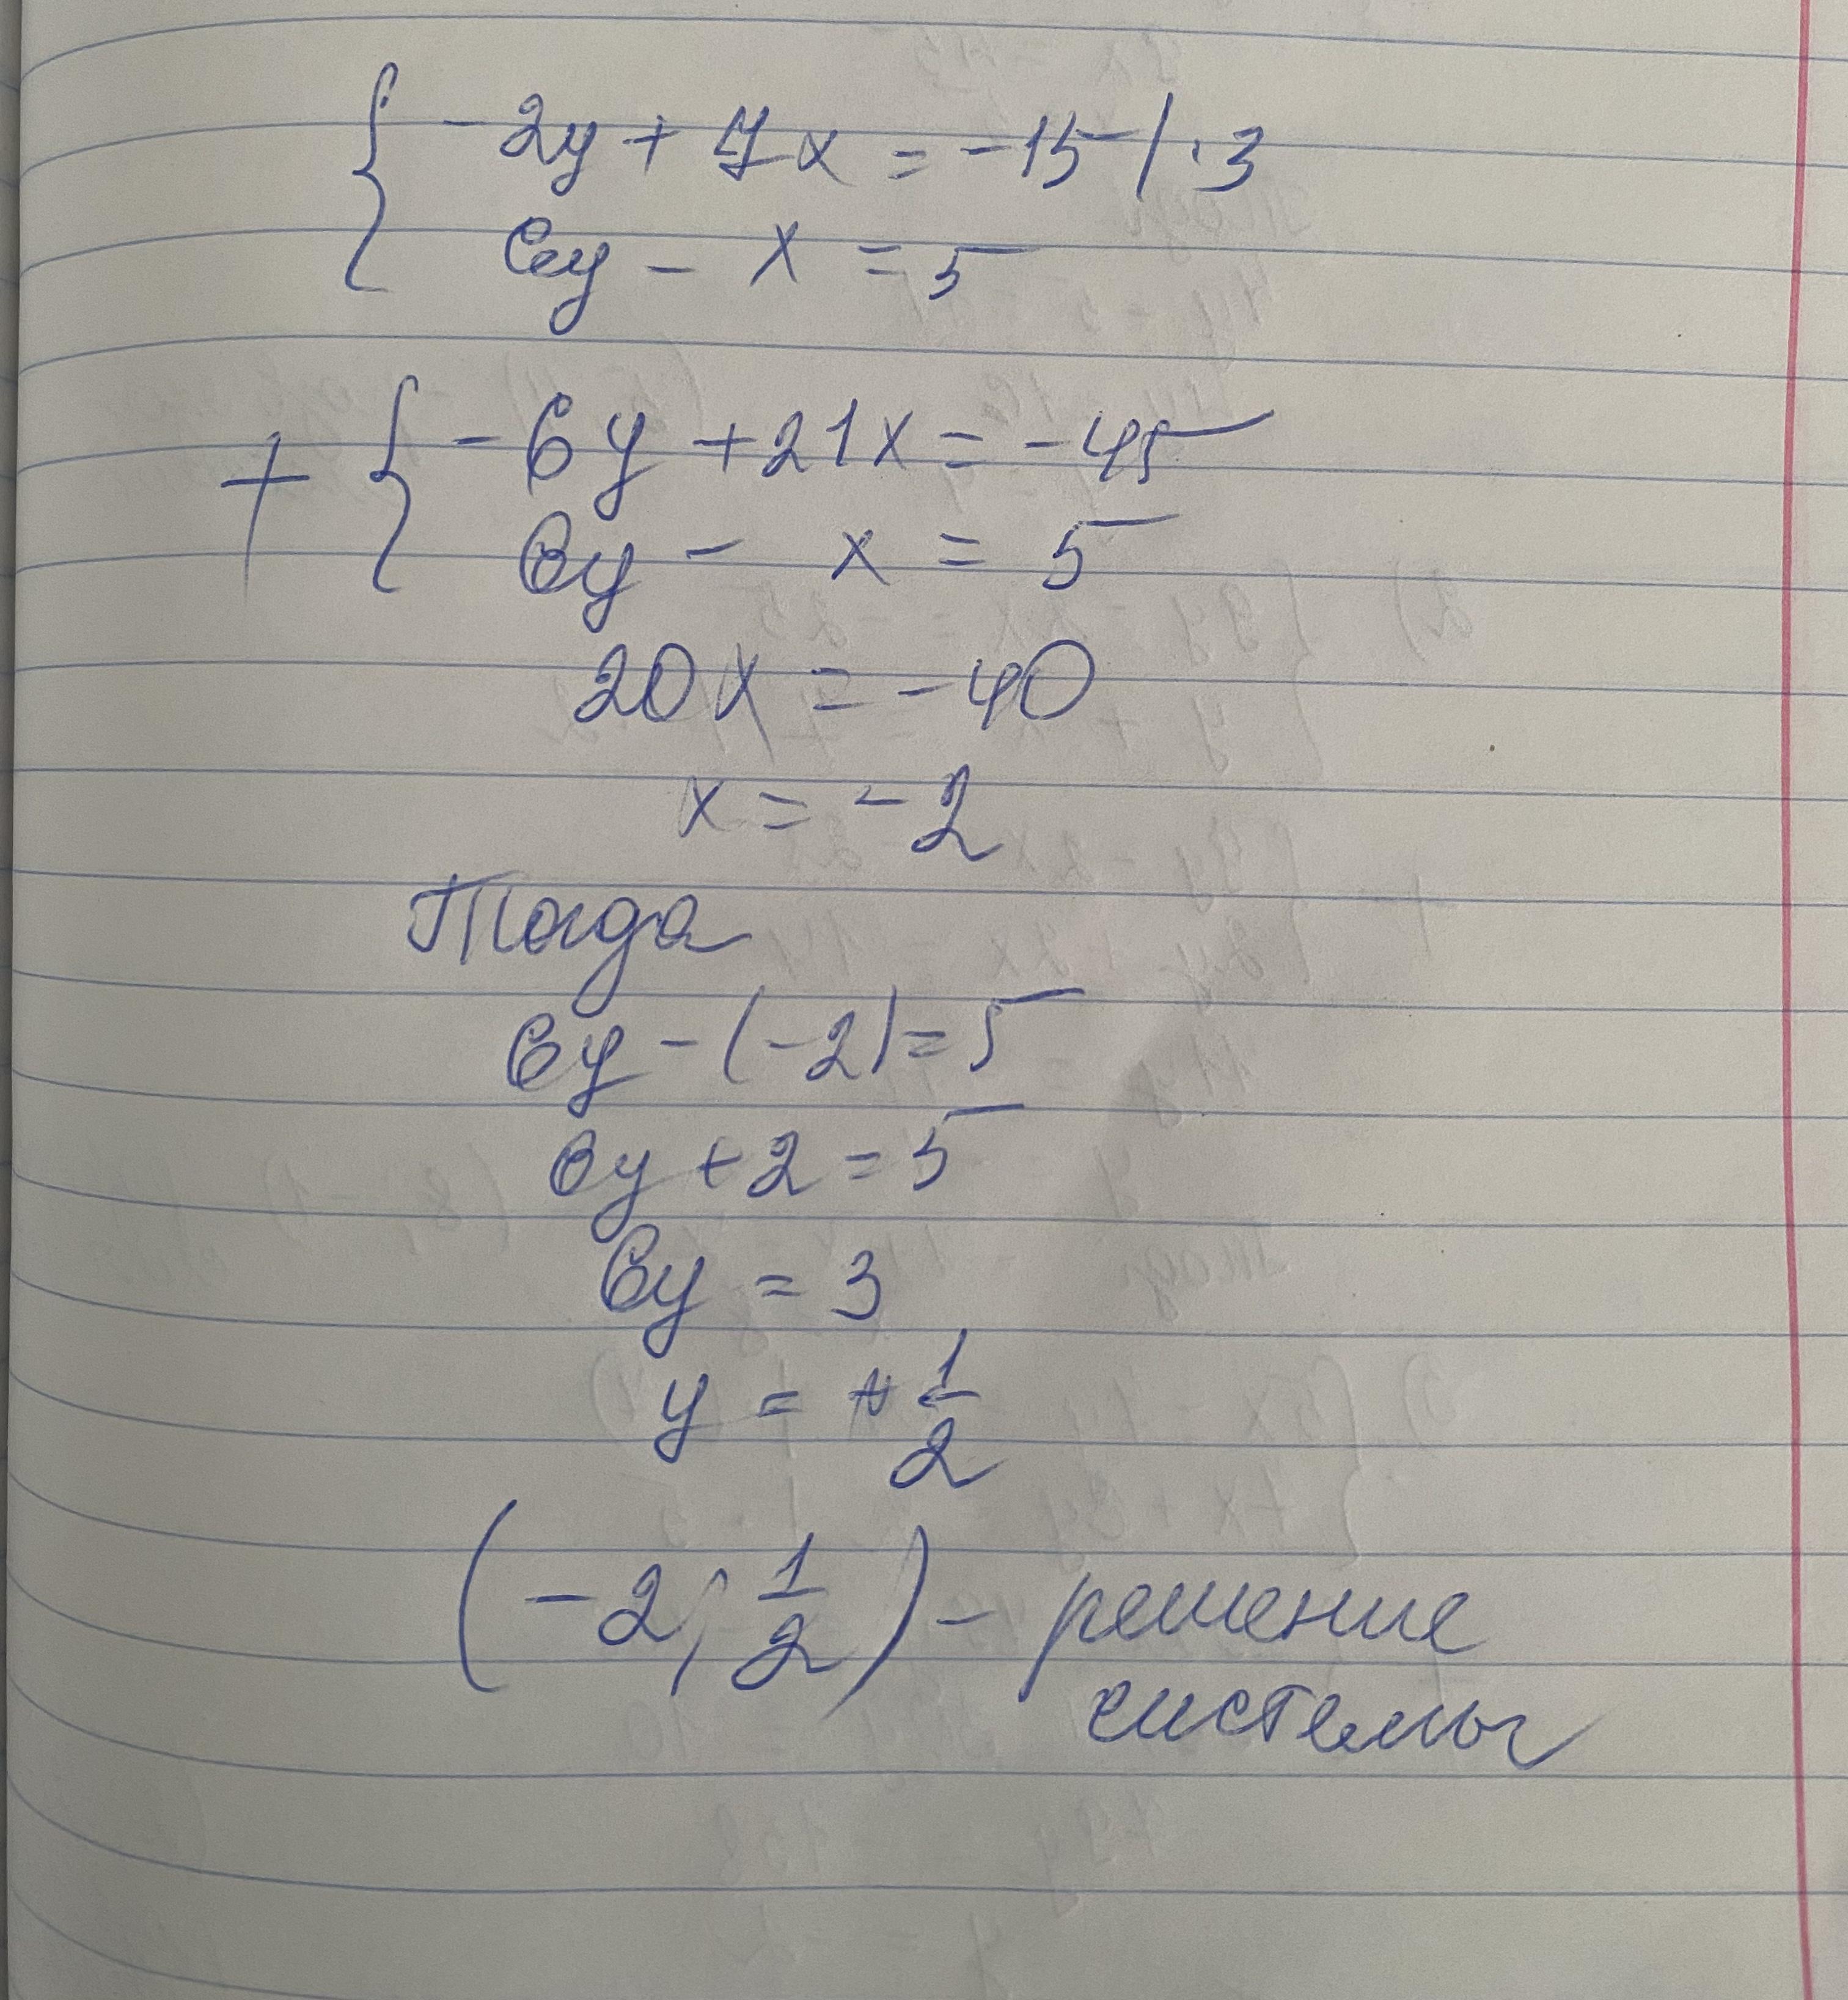 { -2y + 7x = -15 / · 3
6y - x = 5
+ { -6y + 21x = -45
6y - x = 5
20x = -40
x = -2
Тогда
6y - (-2) = 5
6y + 2 = 5
6y = 3
y = 1/2
(-2; 1/2) - решение
системы